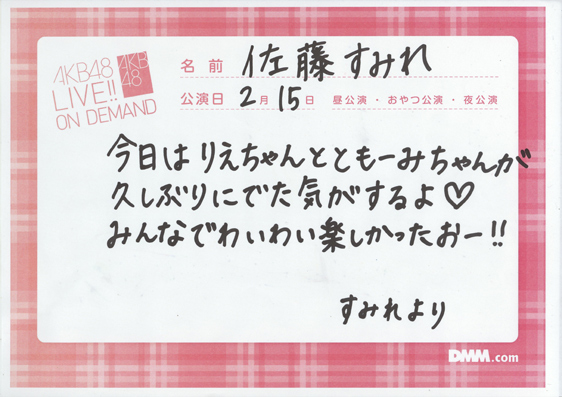 AKB48
LIVE!!
ON DEMAND
AKB
48
名前 佐藤すみれ
公演日 2月15日 昼公演・おやつ公演・夜公演
今日はりえちゃんとともーみちゃんが
久しぶりにでた気がするよ♡
みんなでわいわい楽しかったおー!!
すみれより
DMM.com